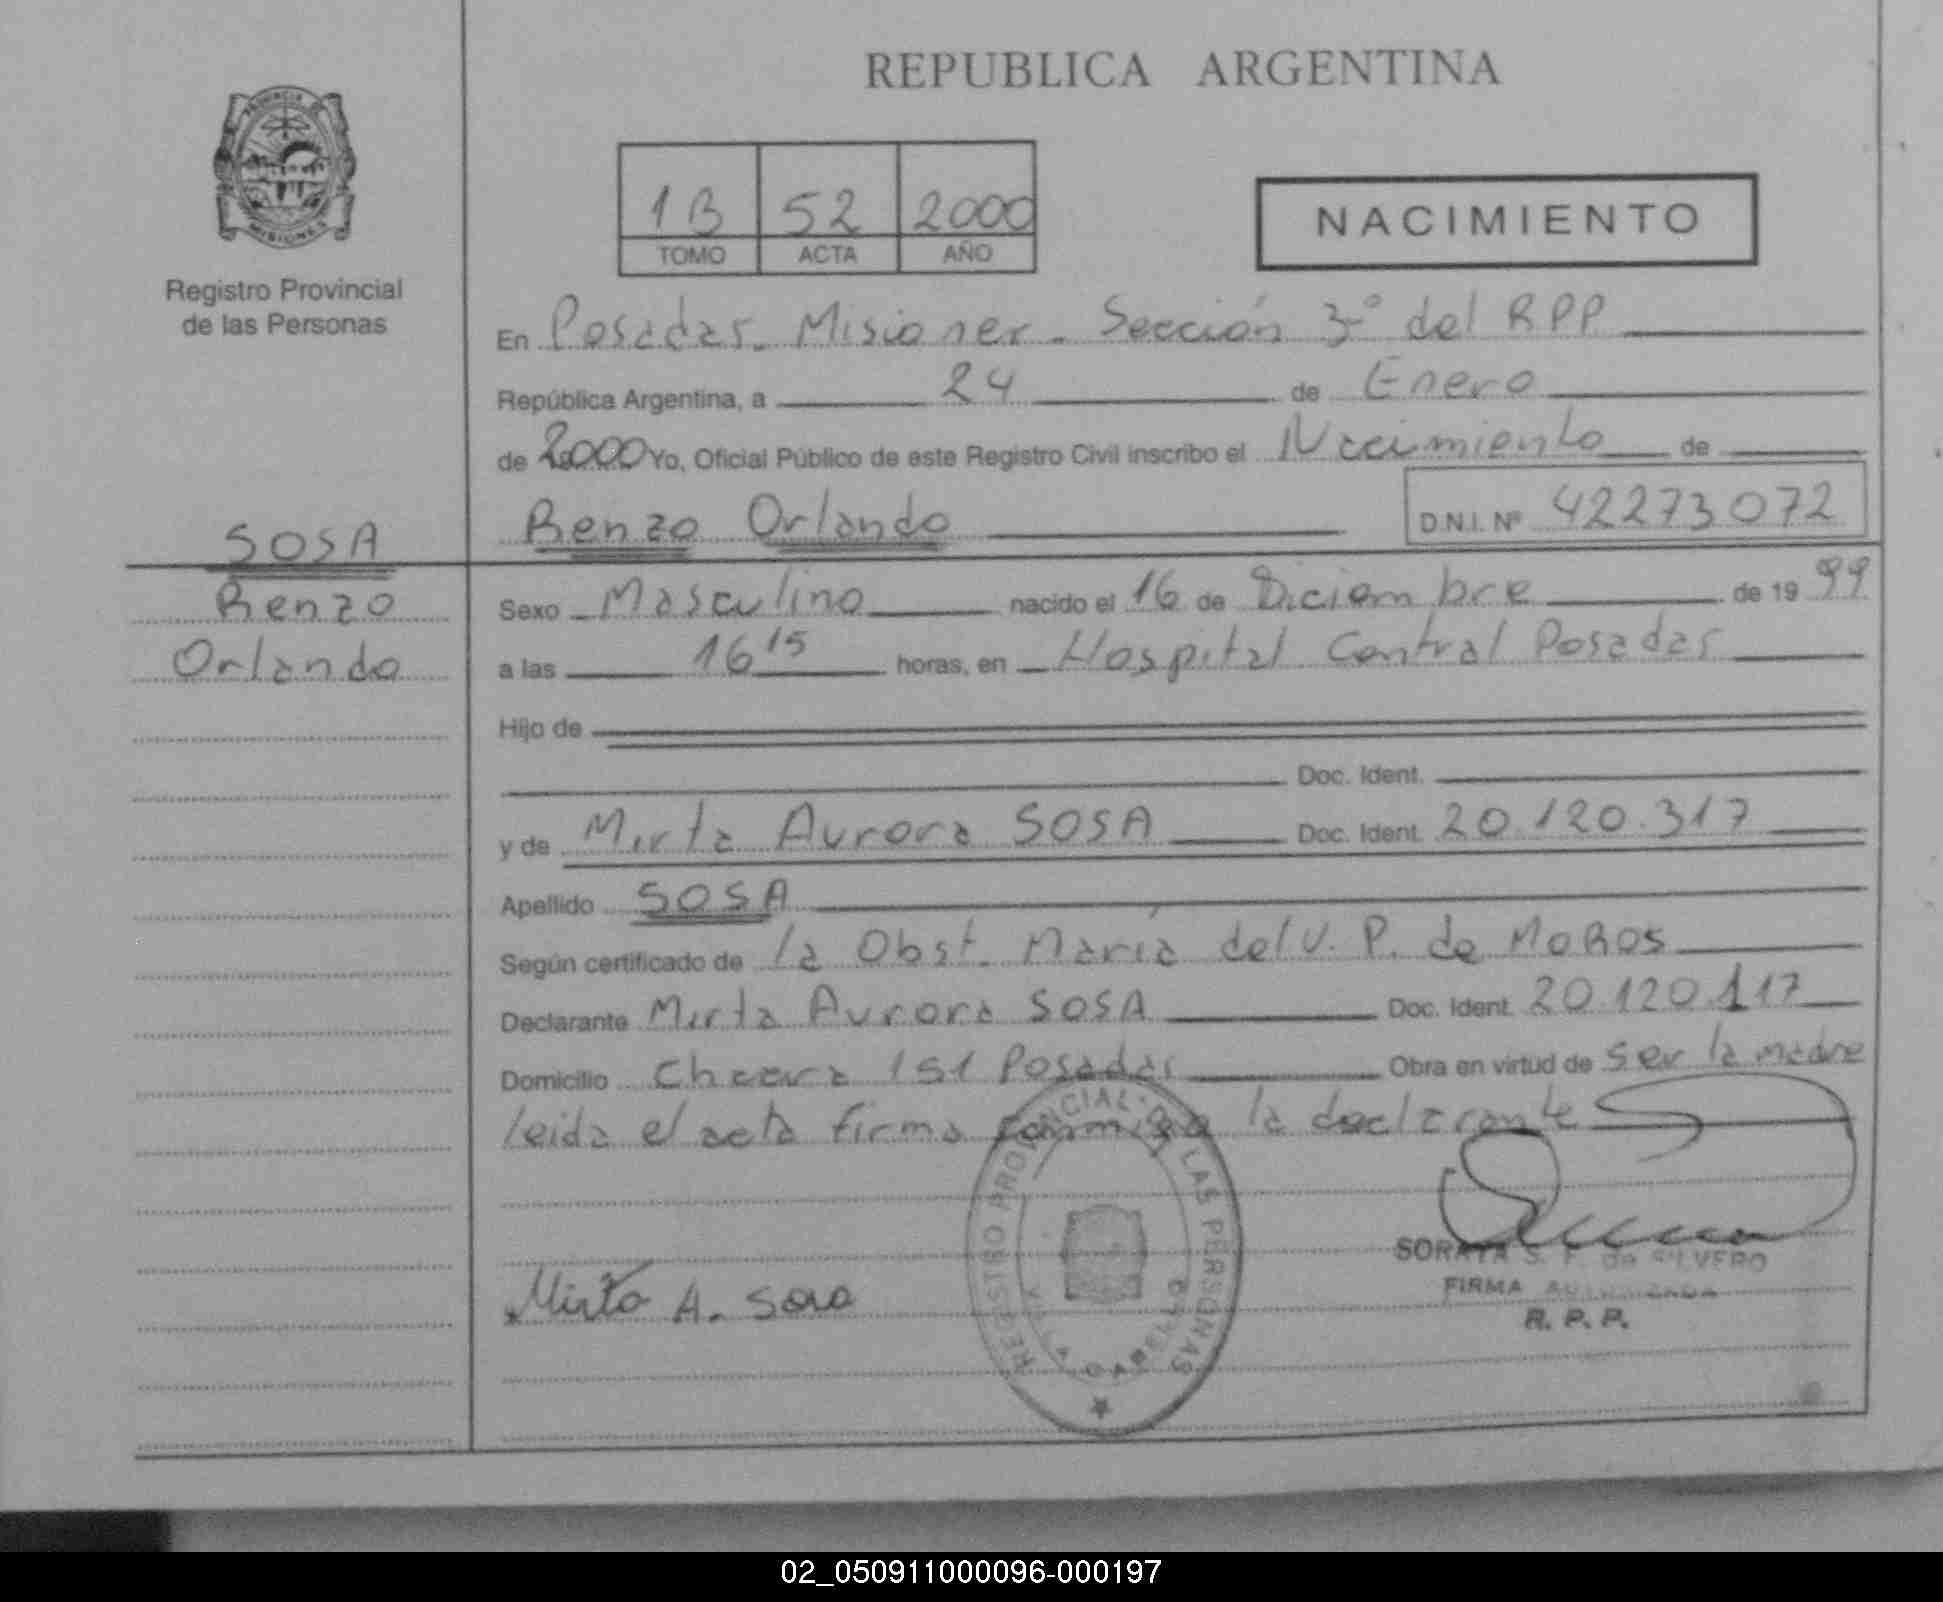 REPUBLICA ARGENTINA
PROVINCIA DE
MISIONES
Registro Provincial
de las Personas
1B 52 2000
TOMO ACTA AÑO
NACIMIENTO
En Posadas - Misiones - Sección 3º del RPP
República Argentina, a 24 de Enero
de 2000 Yo, Oficial Público de este Registro Civil inscribo el Nacimiento de
Renzo Orlando D.N.I. Nº 42273072
SOSA
Renzo
Orlando
Sexo Masculino nacido el 16 de Diciembre de 19 99
a las 16 15 horas, en Hospital Central Posadas
Hijo de
Doc. Ident.
y de Mirta Aurora SOSA Doc. Ident. 20.120.317
Apellido SOSA
Según certificado de la Obst. María del V. P. de MOROS
Declarante Mirta Aurora SOSA Doc. Ident. 20.120.117
Domicilio Chacra 151 Posadas Obra en virtud de ser la madre
leida el acta firma conmigo la declarante
REGISTRO PROVINCIAL DE LAS PERSONAS
Mirta A. Sosa
SORAYA S. F. DE SILVERO
FIRMA AUTORIZADA
R. P. P.
02_050911000096-000197